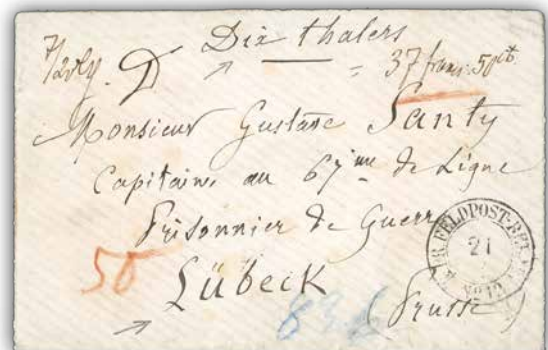 Dix thalers
37 francs 50 cts
Monsieur Gustave Santy
Capitaine au 67ème de Ligne
Prisonnier de Guerre
50
Lübeck
(Prusse)
K. PR. FELDPOST-RELAIS
21
No 12